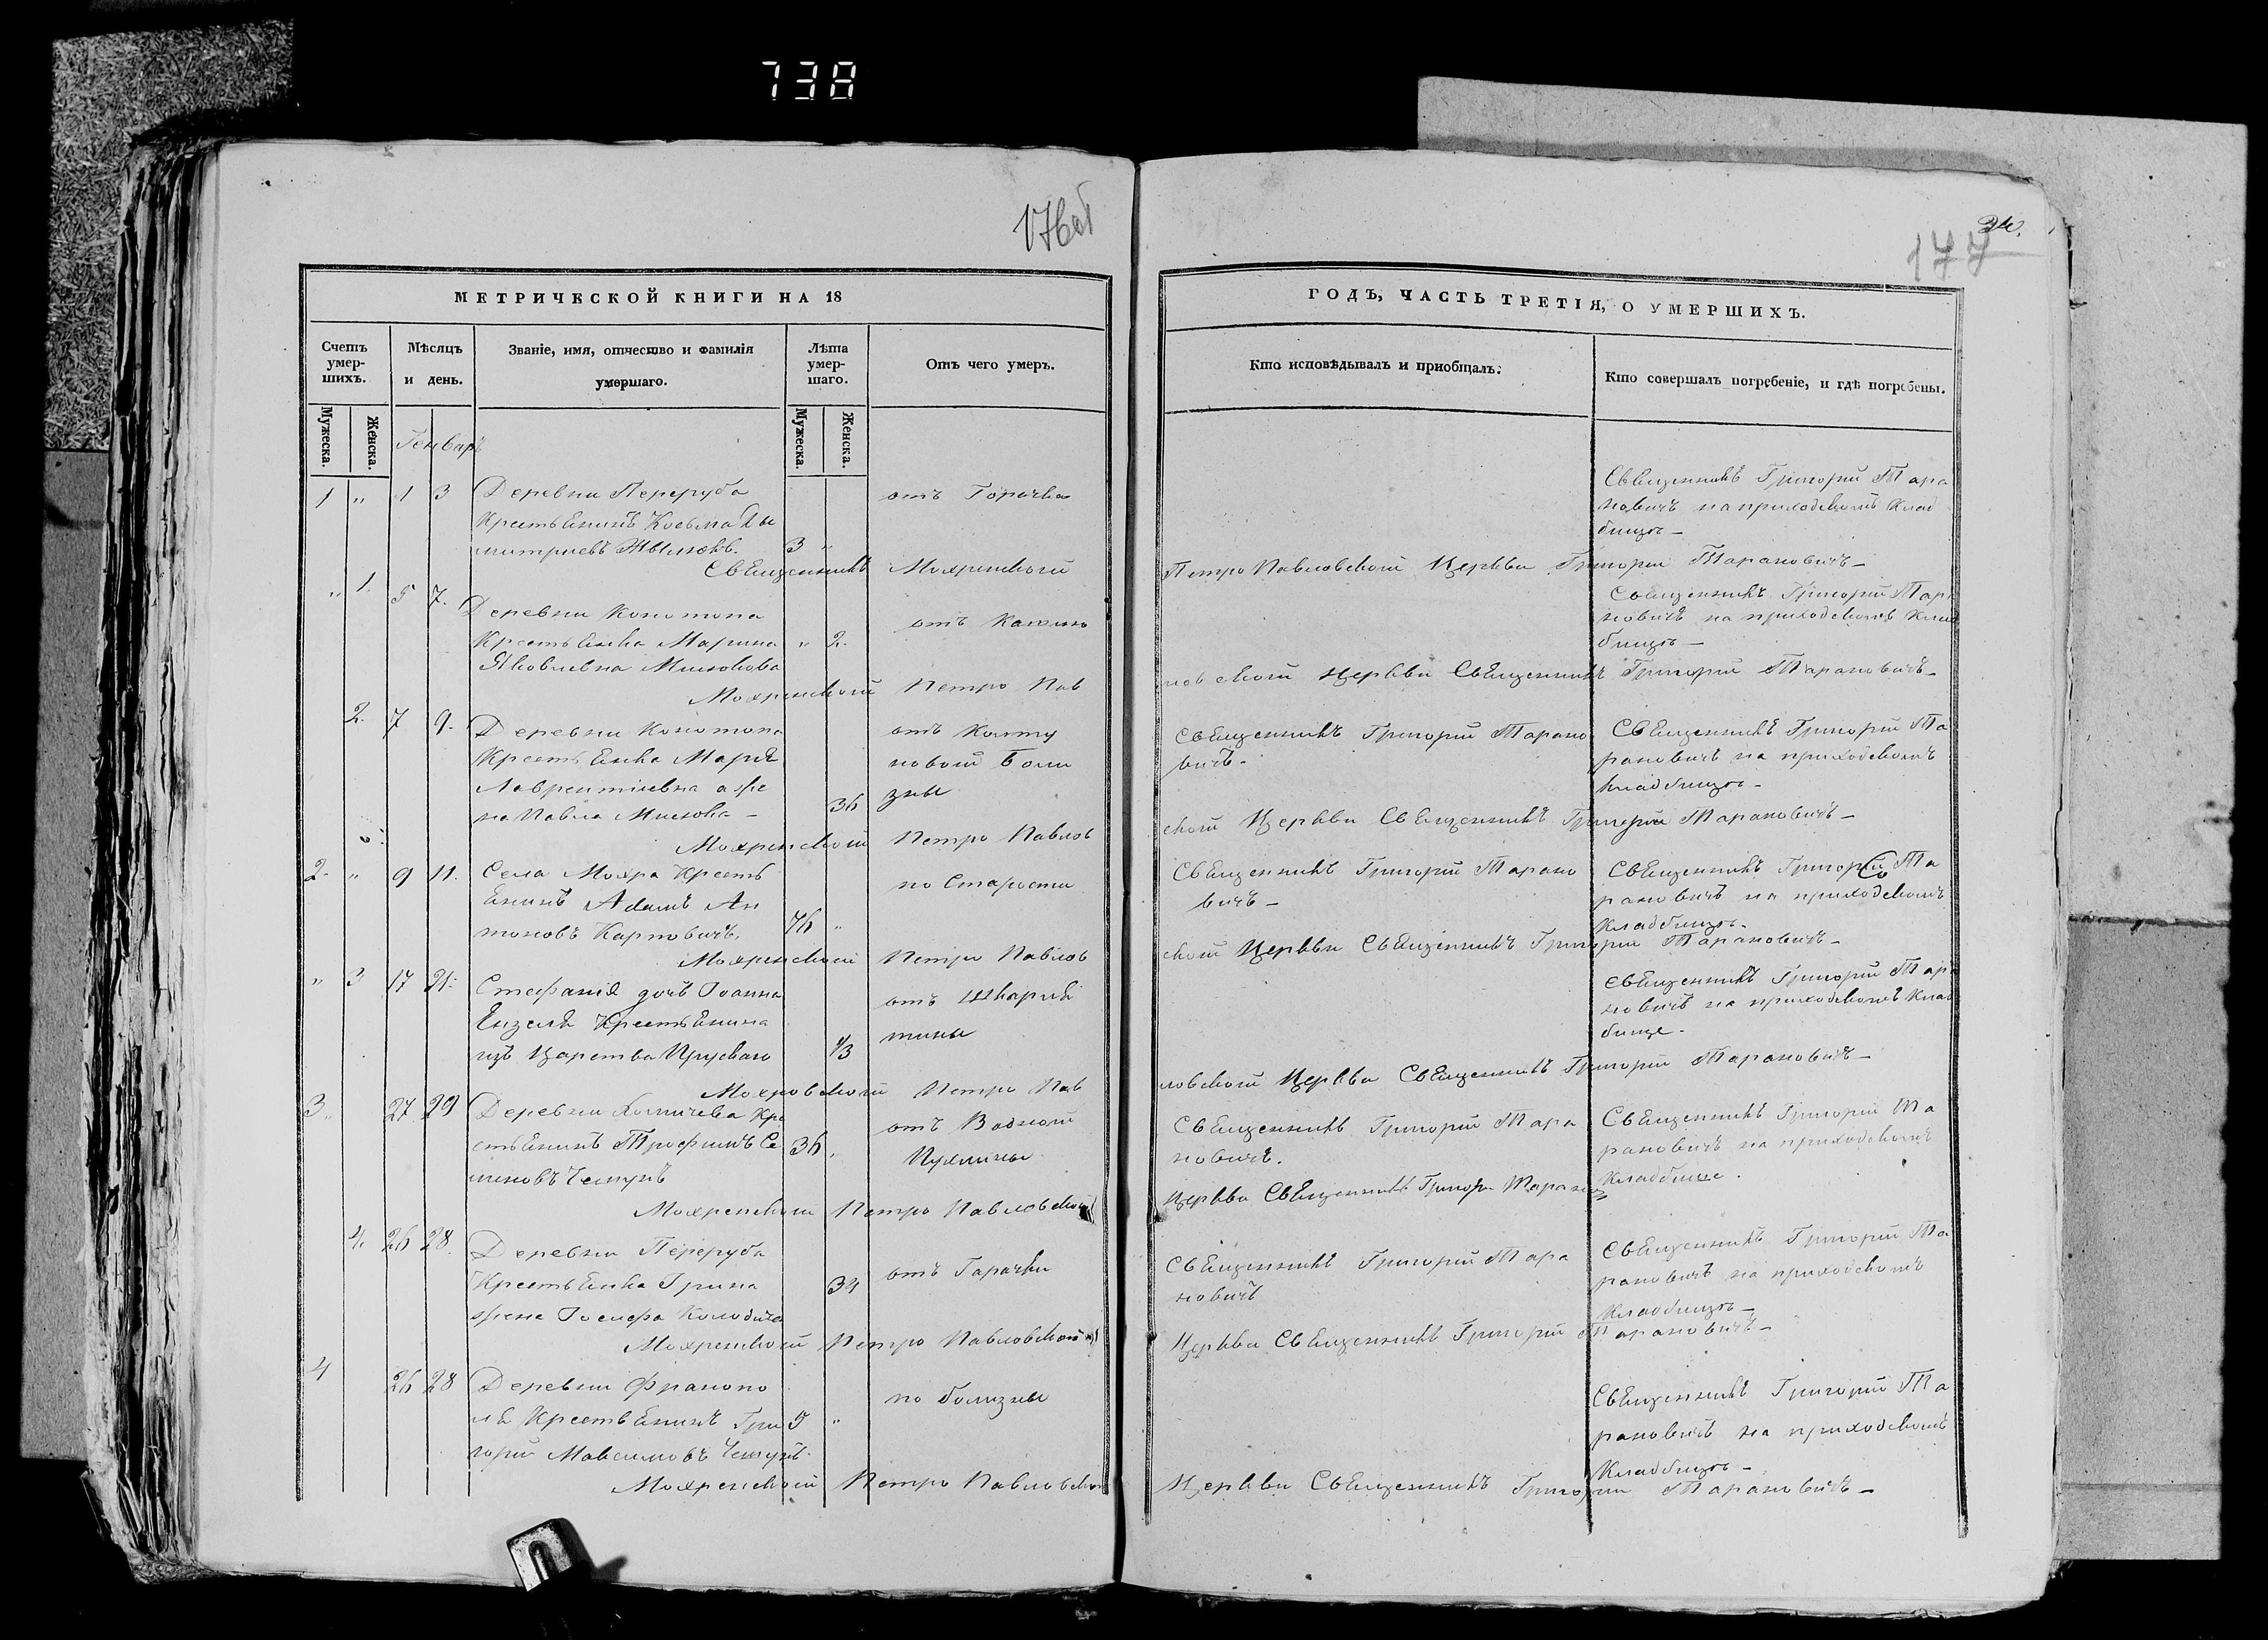 738
176об
34.
177
МЕТРИЧЕСКОЙ КНИГИ НА 18
ГОДЪ, ЧАСТЬ ТРЕТІЯ, О УМЕРШИХЪ.
Счетъ умер-шихъ.
Мѣсяцъ и день.
Званіе, имя, отчество и фамилія умершаго.
Лѣта умер-шаго.
Отъ чего умеръ.
Кто исповѣдывалъ и приобщалъ.
Кто совершалъ погребеніе, и гдѣ погребены.
Мужеска.
Женска.
Мужеска.
Женска.
Генварь
1 " 1 3
Деревни Переруба
Крестьянинъ Косьма Ди
митриевъ
3 "
отъ Горячки
Священникъ Григорій Тара
новичъ на приходскомъ Клад
бищѣ –
Священникъ Мохренской
Петро Павловской Церкви Григорій Тарановичъ –
" 1. 5 7.
Деревни Конотопа
Крестьянка Марина
Яковлевна
" 2.
отъ
Священникъ Григорій Тара
новичъ на приходскомъ Клад
бищѣ –
Мохренской Петро Пав
ловской Церкви Священникъ Григорій Тарановичъ –
2. 7 9.
Деревни Конотопа
Крестьянка Марія
Лаврентіевна а же
на Павла –
36
отъ Колту
новой боли
зны
Священникъ Григорій Тарано
вичъ –
Священникъ Григорій Та
рановичъ на приходскомъ
Кладбищѣ –
Мохренской Петро Павлов
ской Церкви Священникъ Григорій Тарановичъ –
2. " 9 11.
Села Мохра Кресть
янинъ Адамъ Ан
тоновъ Карповичъ.
76 "
по Старости
Священникъ Григорій Тарано
вичъ –
Священникъ Григорій Та
рановичъ на приходскомъ
Кладбищѣ –
Мохренской Петро Павлов
ской Церкви Священникъ Григорій Тарановичъ –
" 3 17 21.
Стефанія дочь Іоанна
Крестьянина
изъ Царства Прускаго
1/3
отъ Шкарля
тины
Священникъ Григорій Тара
новичъ на приходскомъ Клад
бище –
Мохровской Петро Пав
ловской Церкви Священникъ Григорій Тарановичъ –
3 " 27 29
Деревни Кре
стьянинъ Трофимъ Се
меновъ
36 "
отъ Водной
Пухлины
Священникъ Григорій Тара
новичъ.
Священникъ Григорій Та
рановичъ на приходскомъ
Кладбище.
Мохренской Петро Павловской
Церкви Священникъ Григорій
4. 26 28.
Деревни Переруба
Крестьянка Ирина
жена Іосифа
34
отъ Гарячки
Священникъ Григорій Тара
новичъ
Священникъ Григорій Та
рановичъ на приходскомъ
Кладбищѣ –
Мохренской Петро Павловской
Церкви Священникъ Григорій Тарановичъ –
4 26 28
Деревни Франопо
ля Крестьянинъ Гри
горій Максимовъ
5 "
по болизны
Священникъ Григорій Та
рановичъ на приходскомъ
Кладбищѣ –
Мохренской Петро Павловской
Церкви Священникъ Григорій Тарановичъ –